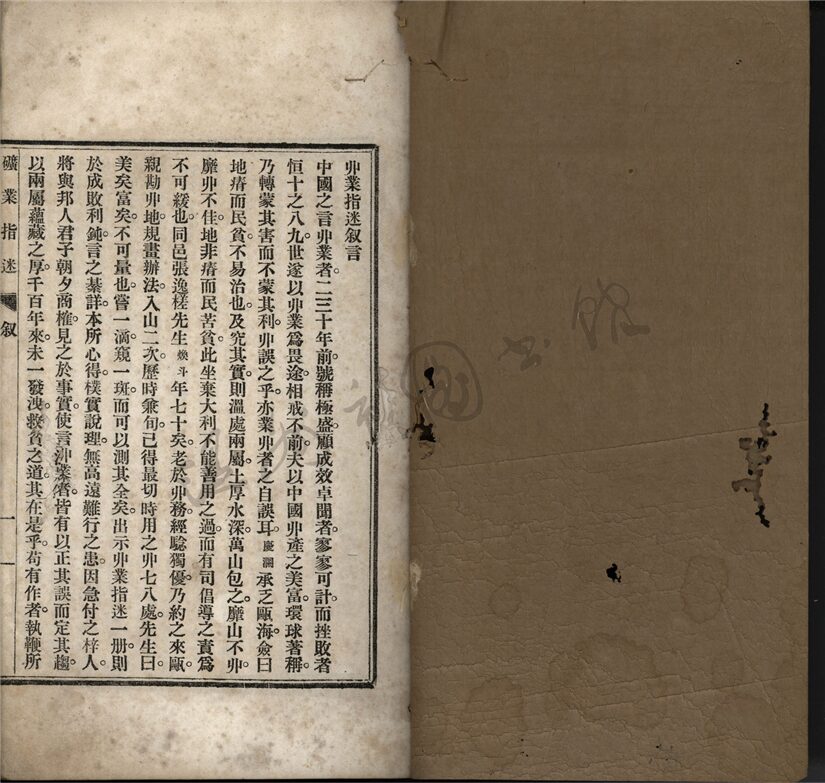 丱業指迷叙言
中國之言丱業者。二三十年前。號稱極盛。顧成效卓聞者。寥寥可計。而挫敗者
恒十之八九。世遂以丱業爲畏途。相戒不前。夫以中國丱產之美富。環球著稱。
乃轉蒙其害而不蒙其利。丱誤之乎。亦業丱者之自誤耳。慶瀾承乏甌海。僉曰
地瘠而民貧。不易治也。及究其實。則溫處兩屬。土厚水深。萬山包之。靡山不丱
靡丱不佳。地非瘠而民苦貧。此坐棄大利不能善用之過。而有司倡導之責。爲
不可緩也。同邑張逸槎先生煥斗年七十矣。老於丱務。經騐獨優。乃約之來甌。
親勘丱地。規畫辦法。入山二次。歷時兼旬。已得最切時用之丱七八處。先生曰
美矣富矣。不可量也。嘗一滴。窺一斑。而可以測其全矣。出示丱業指迷一册。則
於成敗利鈍。言之綦詳。本所心得。樸實說理。無高遠難行之患。因急付之梓人。
將與邦人君子朝夕商榷。見之於事實。使言丱業者。皆有以正其誤而定其趨。
以兩屬蘊藏之厚。千百年來。未一發洩。救貧之道。其在是乎。苟有作者。執鞭所
礦業指迷 叙 一